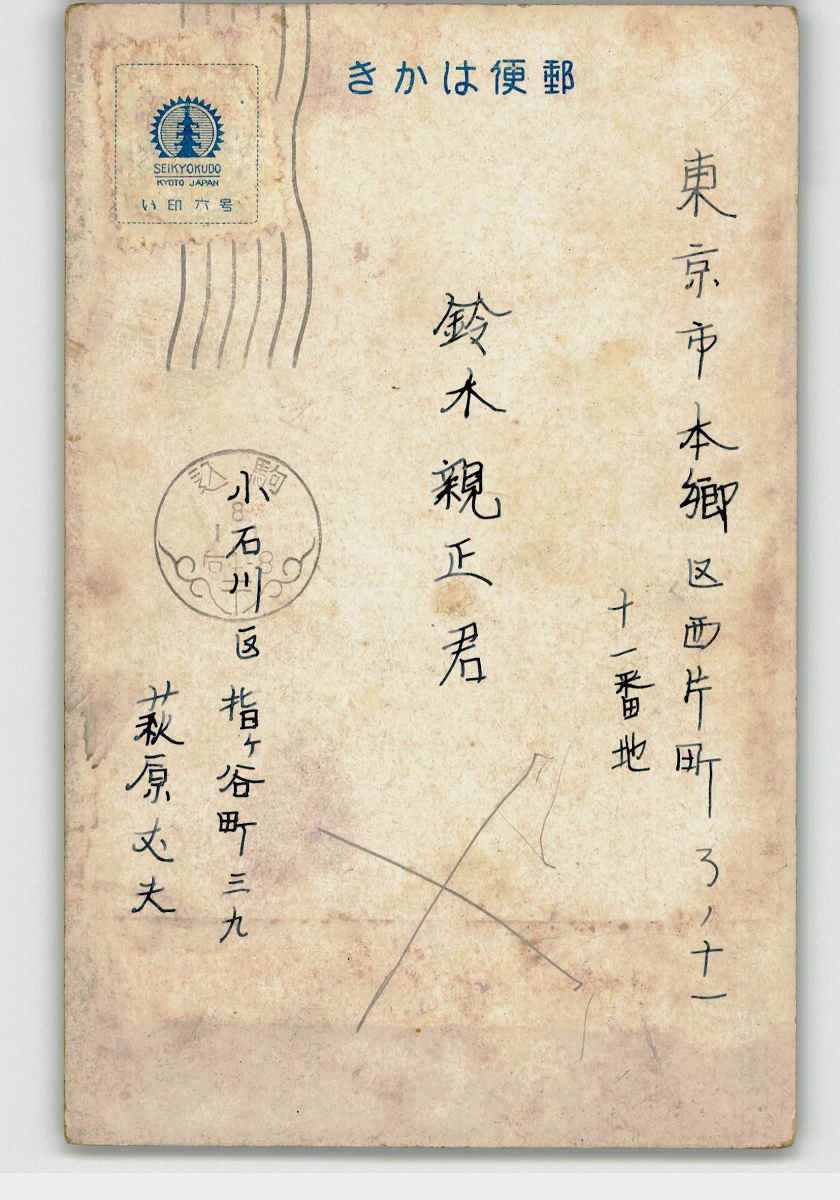 きかは便郵
SEIKYOKUDO
KYOTO JAPAN
い印六号
東京市本郷区西片町ろノ十一
十一番地
鈴木親正君
小石川区指ヶ谷町三九
萩原丈夫
駒込
8